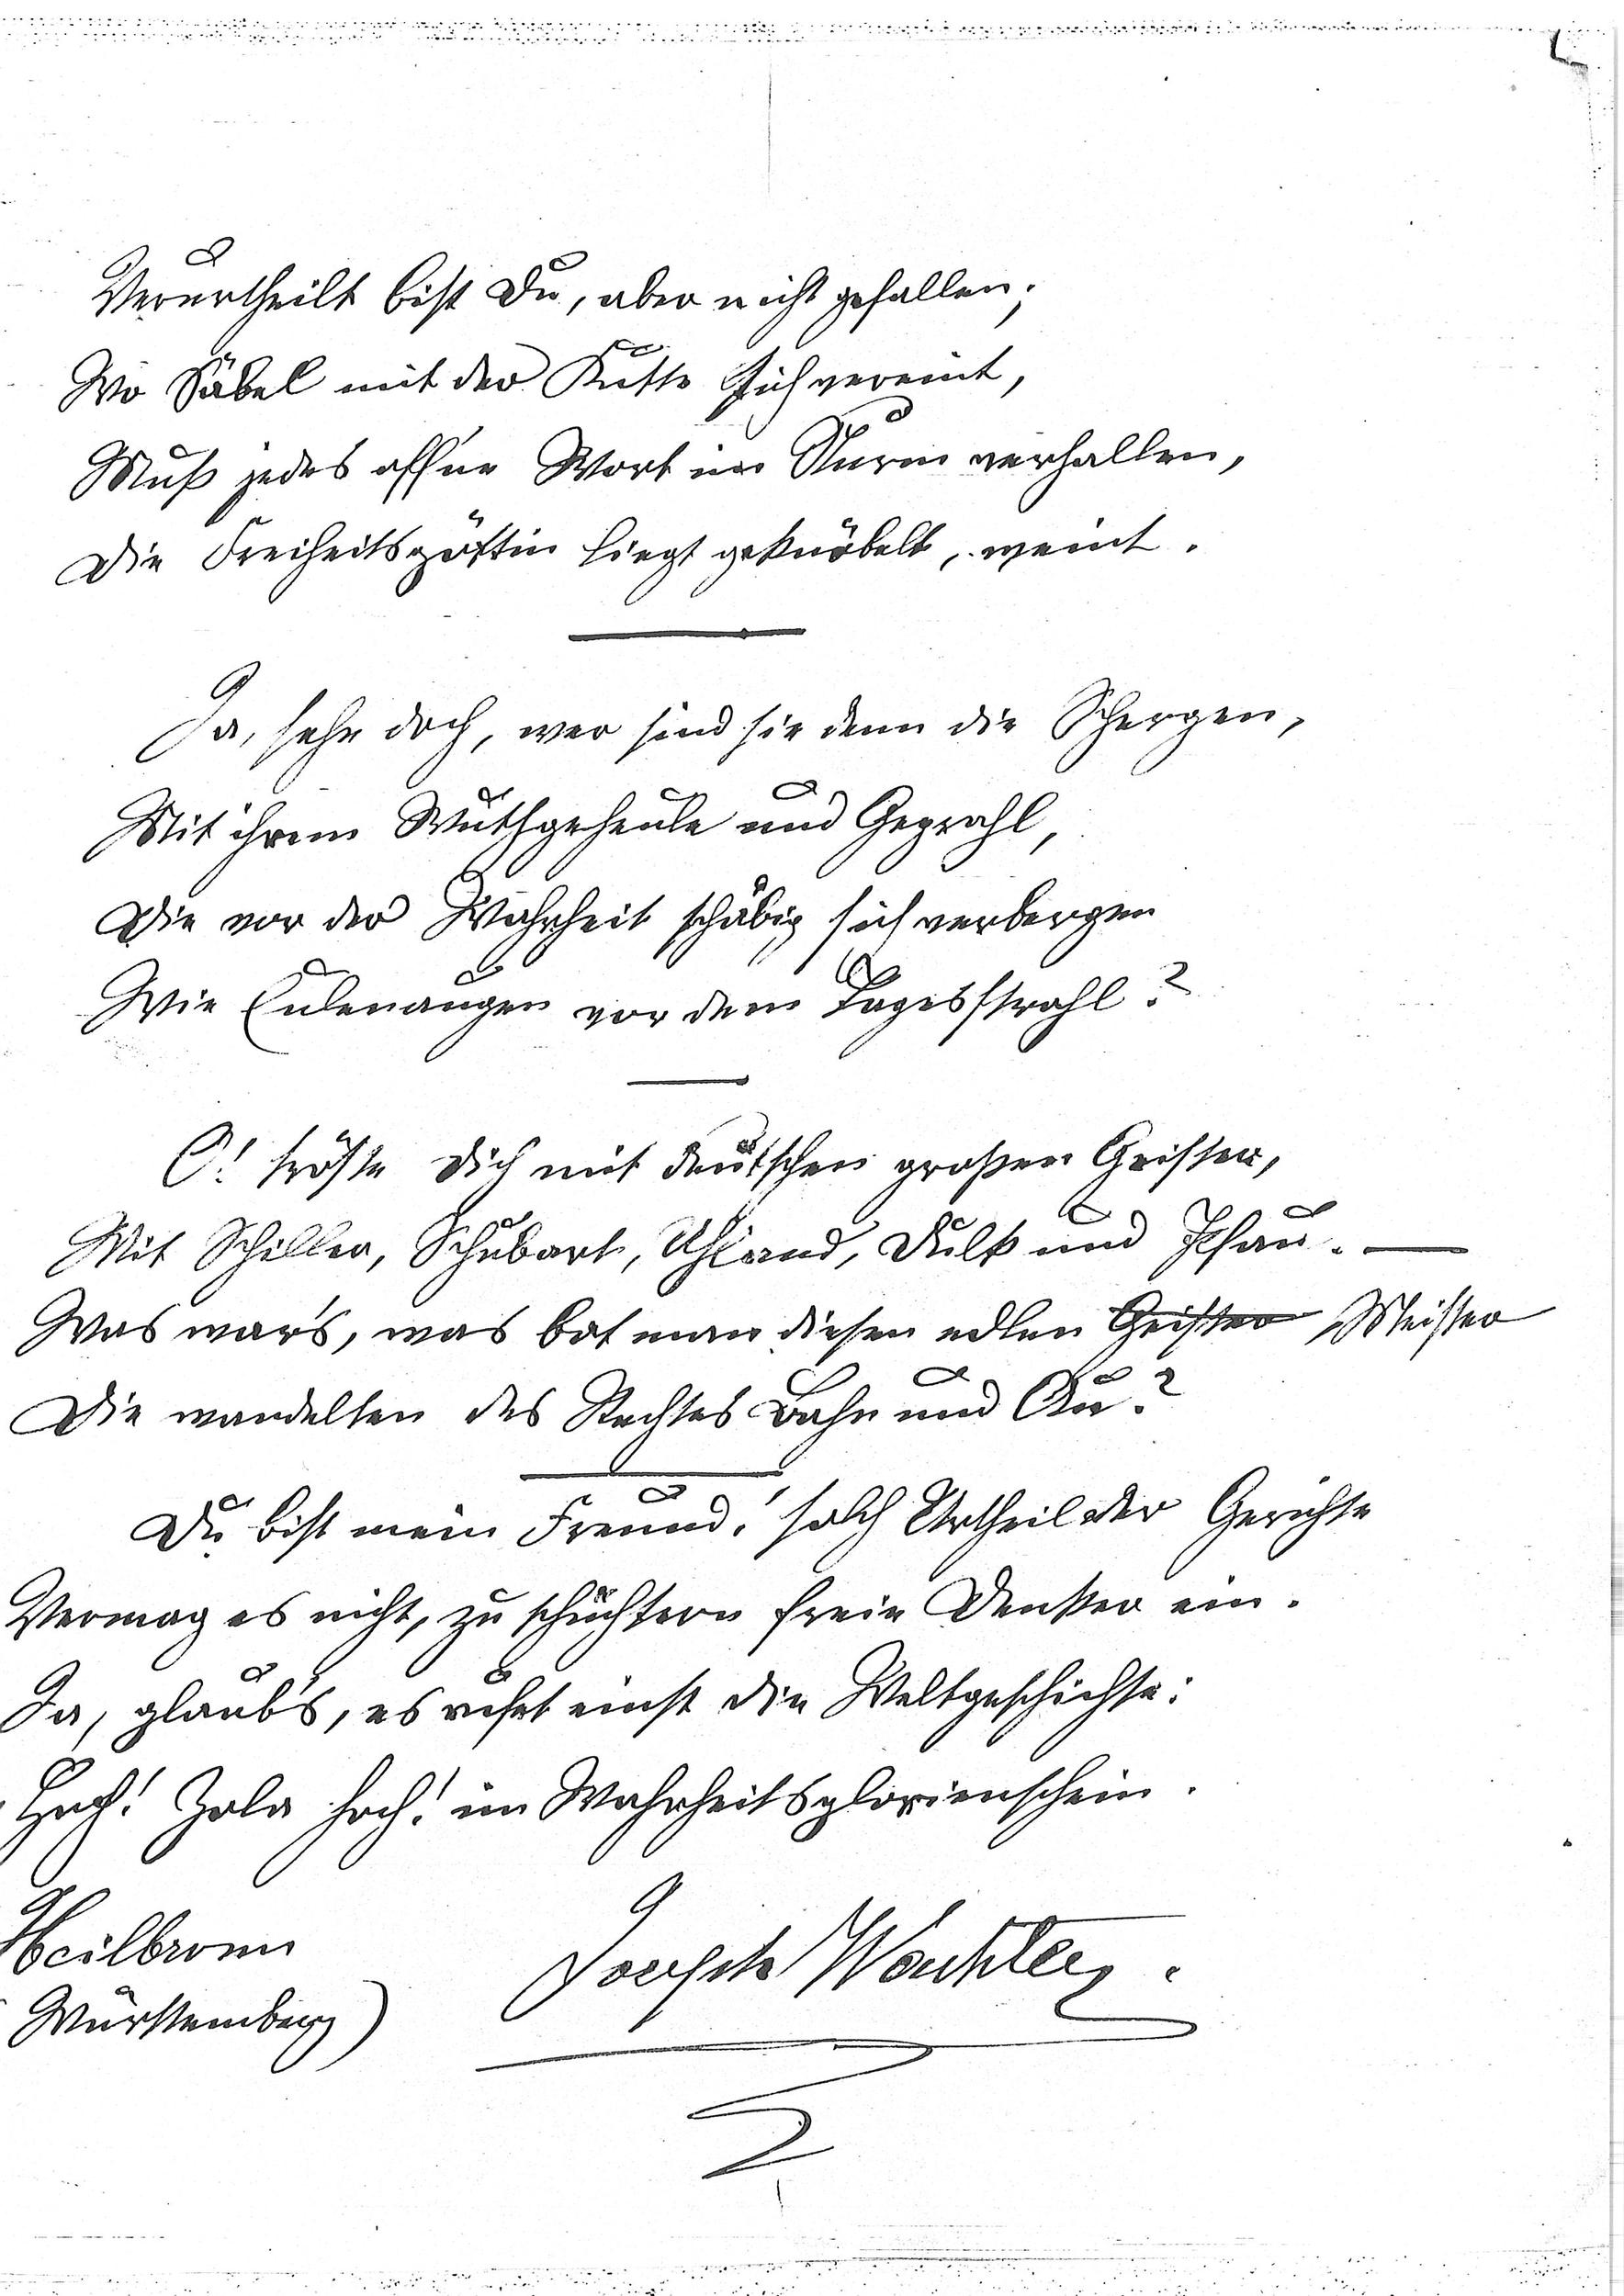 Verurtheilt bist Du, aber nicht gefallen;
Wo Säbel mit der Kutte sich vereint,
Muß jedes off'ne Wort im Sturm verhallen,
Die Freiheitsgöttin liegt geknöbelt, weint.
Ja, sehe doch, wer sind sie denn die Schergen,
Mit ihrem Wuthgeheule und Geprahl,
Die vor der Wahrheit schäbig sich verbergen
Wie Eulenaugen vor dem Tagesstrahl?
O! tröste Dich mit deutschen großen Geister,
Mit Schiller, Schubart, Uhland, Dulk und Pfau. —
Was war's, was bot man diesen edlen Geister Meister
Die wandelten des Rechtes Bahn und Au?
Du bist mein Freund! solch Urtheil der Gerichte
Vermag es nicht, zu schüchtern freie Denker ein.
Ja, glaub's, es ruft einst die Weltgeschichte:
Hoch! Zola hoch! im Wahrheitsglorienschein.
Heilbronn
Württemberg)
Joseph